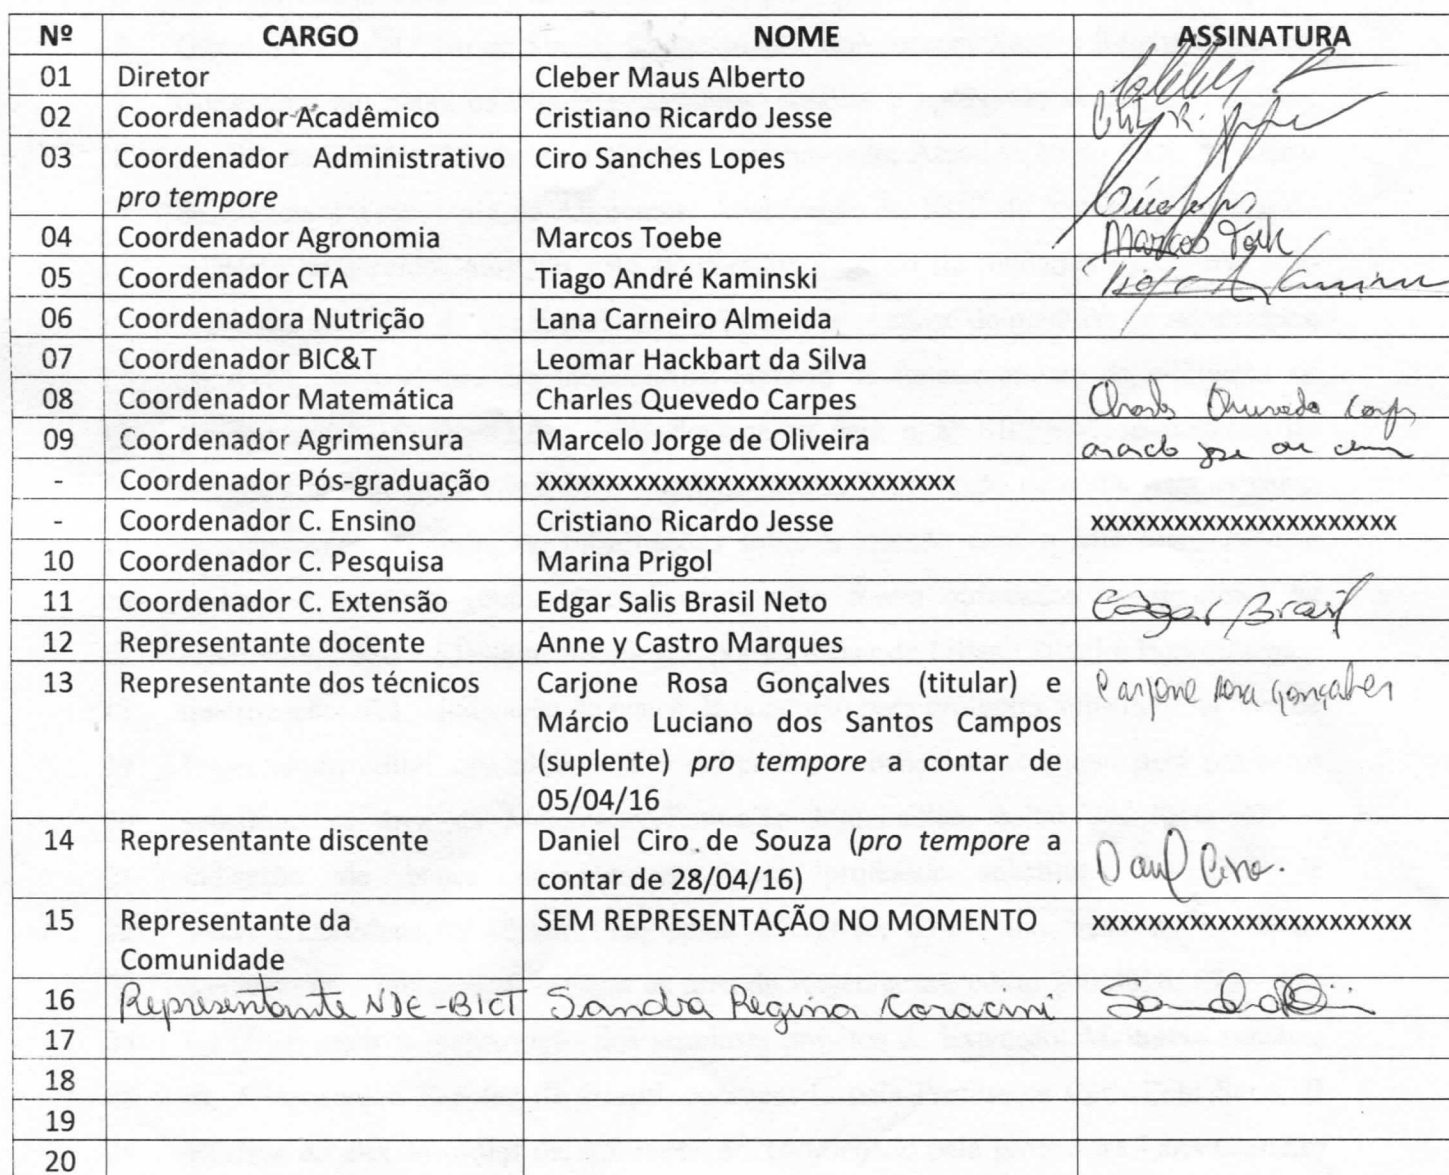 Nº CARGO NOME ASSINATURA
01 Diretor Cleber Maus Alberto Cleber
02 Coordenador Acadêmico Cristiano Ricardo Jesse
03 Coordenador Administrativo Ciro Sanches Lopes
pro tempore
04 Coordenador Agronomia Marcos Toebe Marcos
05 Coordenador CTA Tiago André Kaminski
06 Coordenadora Nutrição Lana Carneiro Almeida
07 Coordenador BIC&T Leomar Hackbart da Silva
08 Coordenador Matemática Charles Quevedo Carpes
09 Coordenador Agrimensura Marcelo Jorge de Oliveira
- Coordenador Pós-graduação xxxxxxxxxxxxxxxxxxxxxxxxxxxxxx
- Coordenador C. Ensino Cristiano Ricardo Jesse xxxxxxxxxxxxxxxxxxxxxx
10 Coordenador C. Pesquisa Marina Prigol
11 Coordenador C. Extensão Edgar Salis Brasil Neto Edgar Brasil
12 Representante docente Anne y Castro Marques
13 Representante dos técnicos Carjone Rosa Gonçalves (titular) e Carjone Rosa Gonçalves
Márcio Luciano dos Santos Campos
(suplente) pro tempore a contar de
05/04/16
14 Representante discente Daniel Ciro de Souza (pro tempore a Daniel Ciro.
contar de 28/04/16)
15 Representante da SEM REPRESENTAÇÃO NO MOMENTO xxxxxxxxxxxxxxxxxxxxxxx
Comunidade
16 Representante NDE-BICT Sandra Regina
17
18
19
20